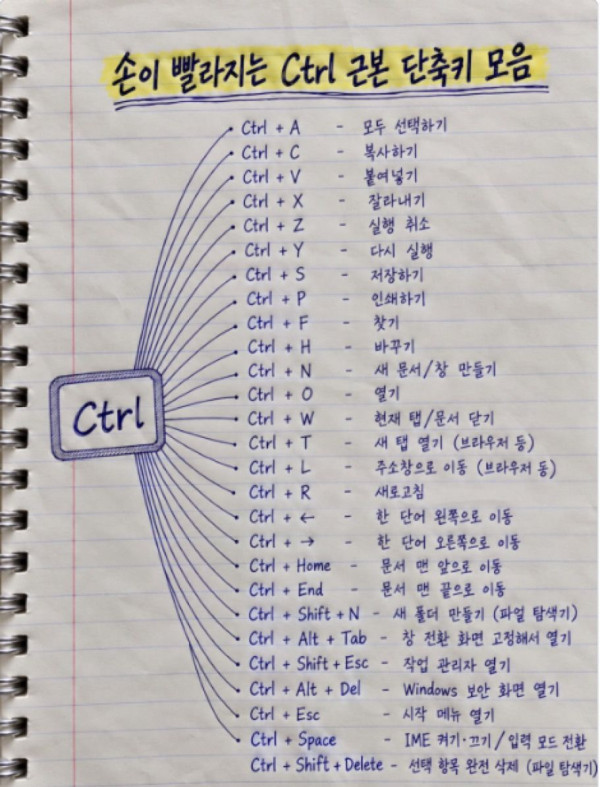 손이 빨라지는 Ctrl 근본 단축키 모음
Ctrl + A - 모두 선택하기
Ctrl + C - 복사하기
Ctrl + V - 붙여넣기
Ctrl + X - 잘라내기
Ctrl + Z - 실행 취소
Ctrl + Y - 다시 실행
Ctrl + S - 저장하기
Ctrl + P - 인쇄하기
Ctrl + F - 찾기
Ctrl + H - 바꾸기
Ctrl + N - 새 문서/창 만들기
Ctrl + O - 열기
Ctrl
Ctrl + W - 현재 탭/문서 닫기
Ctrl + T - 새 탭 열기 (브라우저 등)
Ctrl + L - 주소창으로 이동 (브라우저 등)
Ctrl + R - 새로고침
Ctrl + ← - 한 단어 왼쪽으로 이동
Ctrl + → - 한 단어 오른쪽으로 이동
Ctrl + Home - 문서 맨 앞으로 이동
Ctrl + End - 문서 맨 끝으로 이동
Ctrl + Shift + N - 새 폴더 만들기 (파일 탐색기)
Ctrl + Alt + Tab - 창 전환 화면 고정해서 열기
Ctrl + Shift + Esc - 작업 관리자 열기
Ctrl + Alt + Del - Windows 보안 화면 열기
Ctrl + Esc - 시작 메뉴 열기
Ctrl + Space - IME 켜기·끄기/입력 모드 전환
Ctrl + Shift + Delete - 선택 항목 완전 삭제 (파일 탐색기)